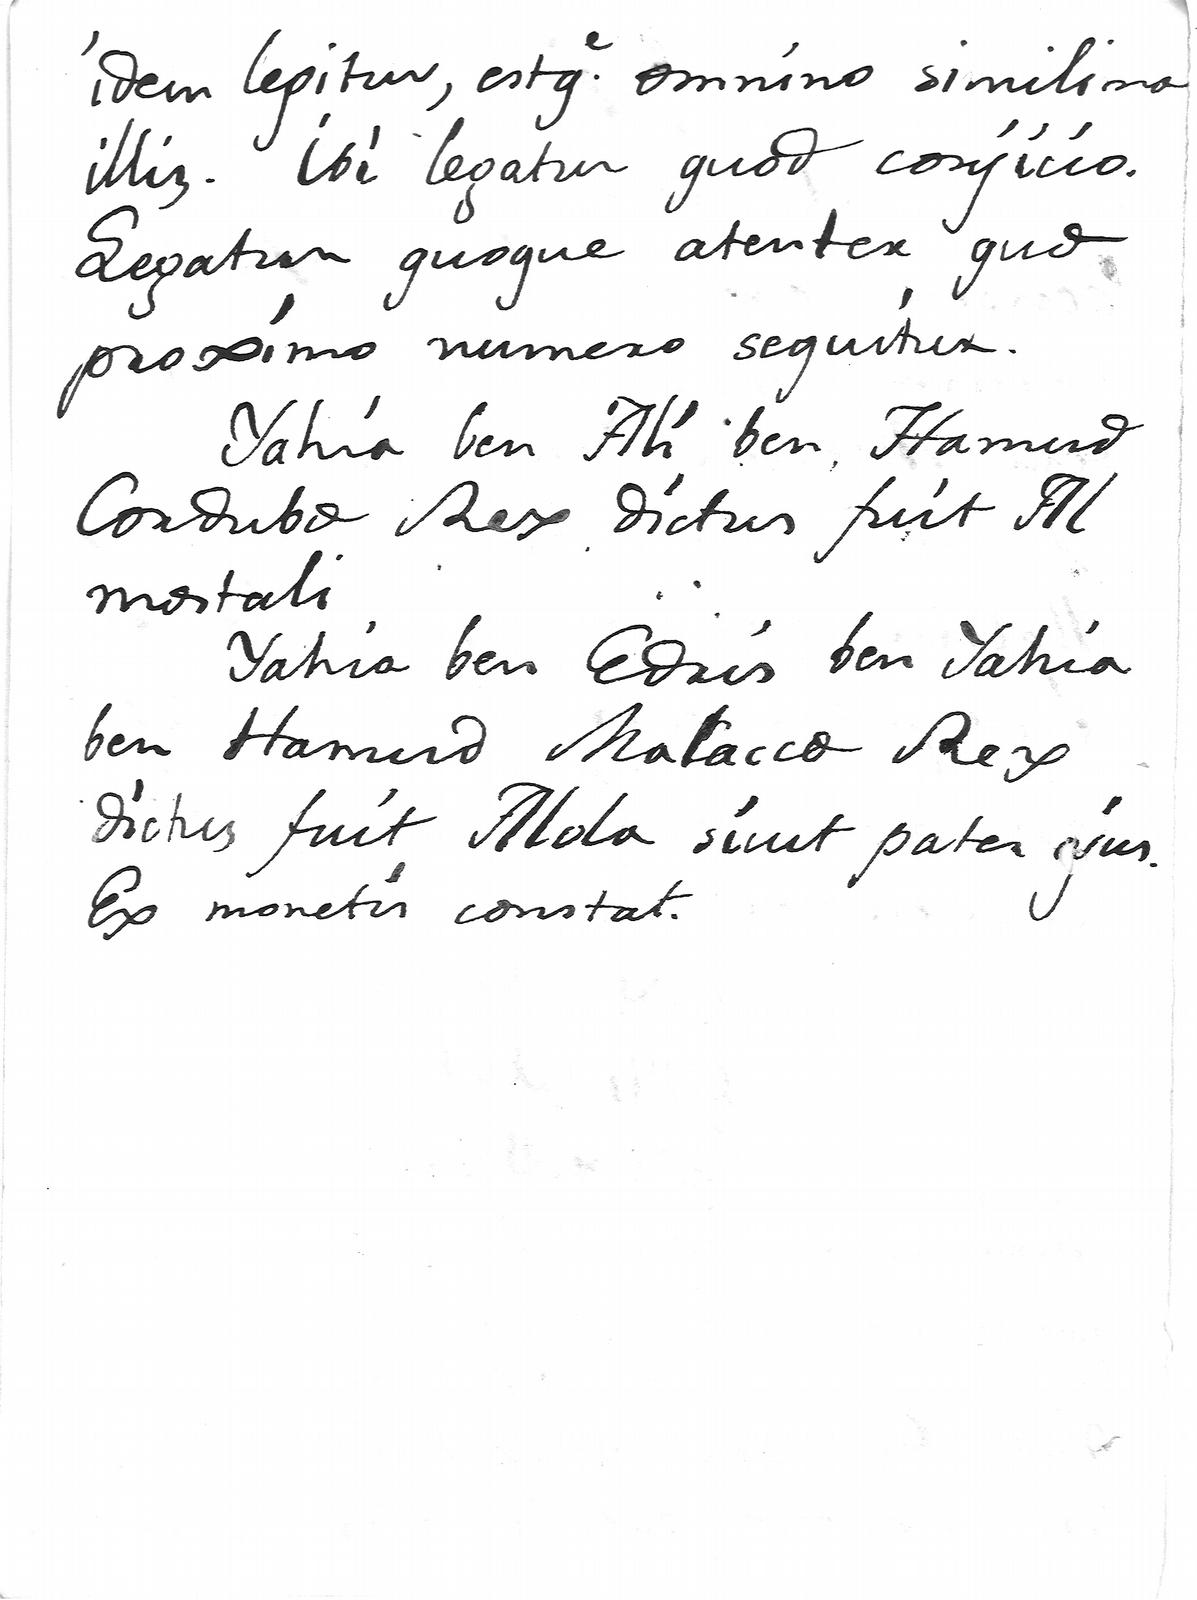 idem legitur, estq.e omnino similima
illis. Ibi legatur quod conjicio.
Legatur quoque atenter quæ
proximo numero sequitur.
Yahia ben Ali ben Hamud
Cordubæ Rex dictus fuit Al
mostali
Yahia ben Edris ben Yahia
ben Hamud Malaccæ Rex
dictus fuit Alola sicut pater ejus.
Ex monetis constat.